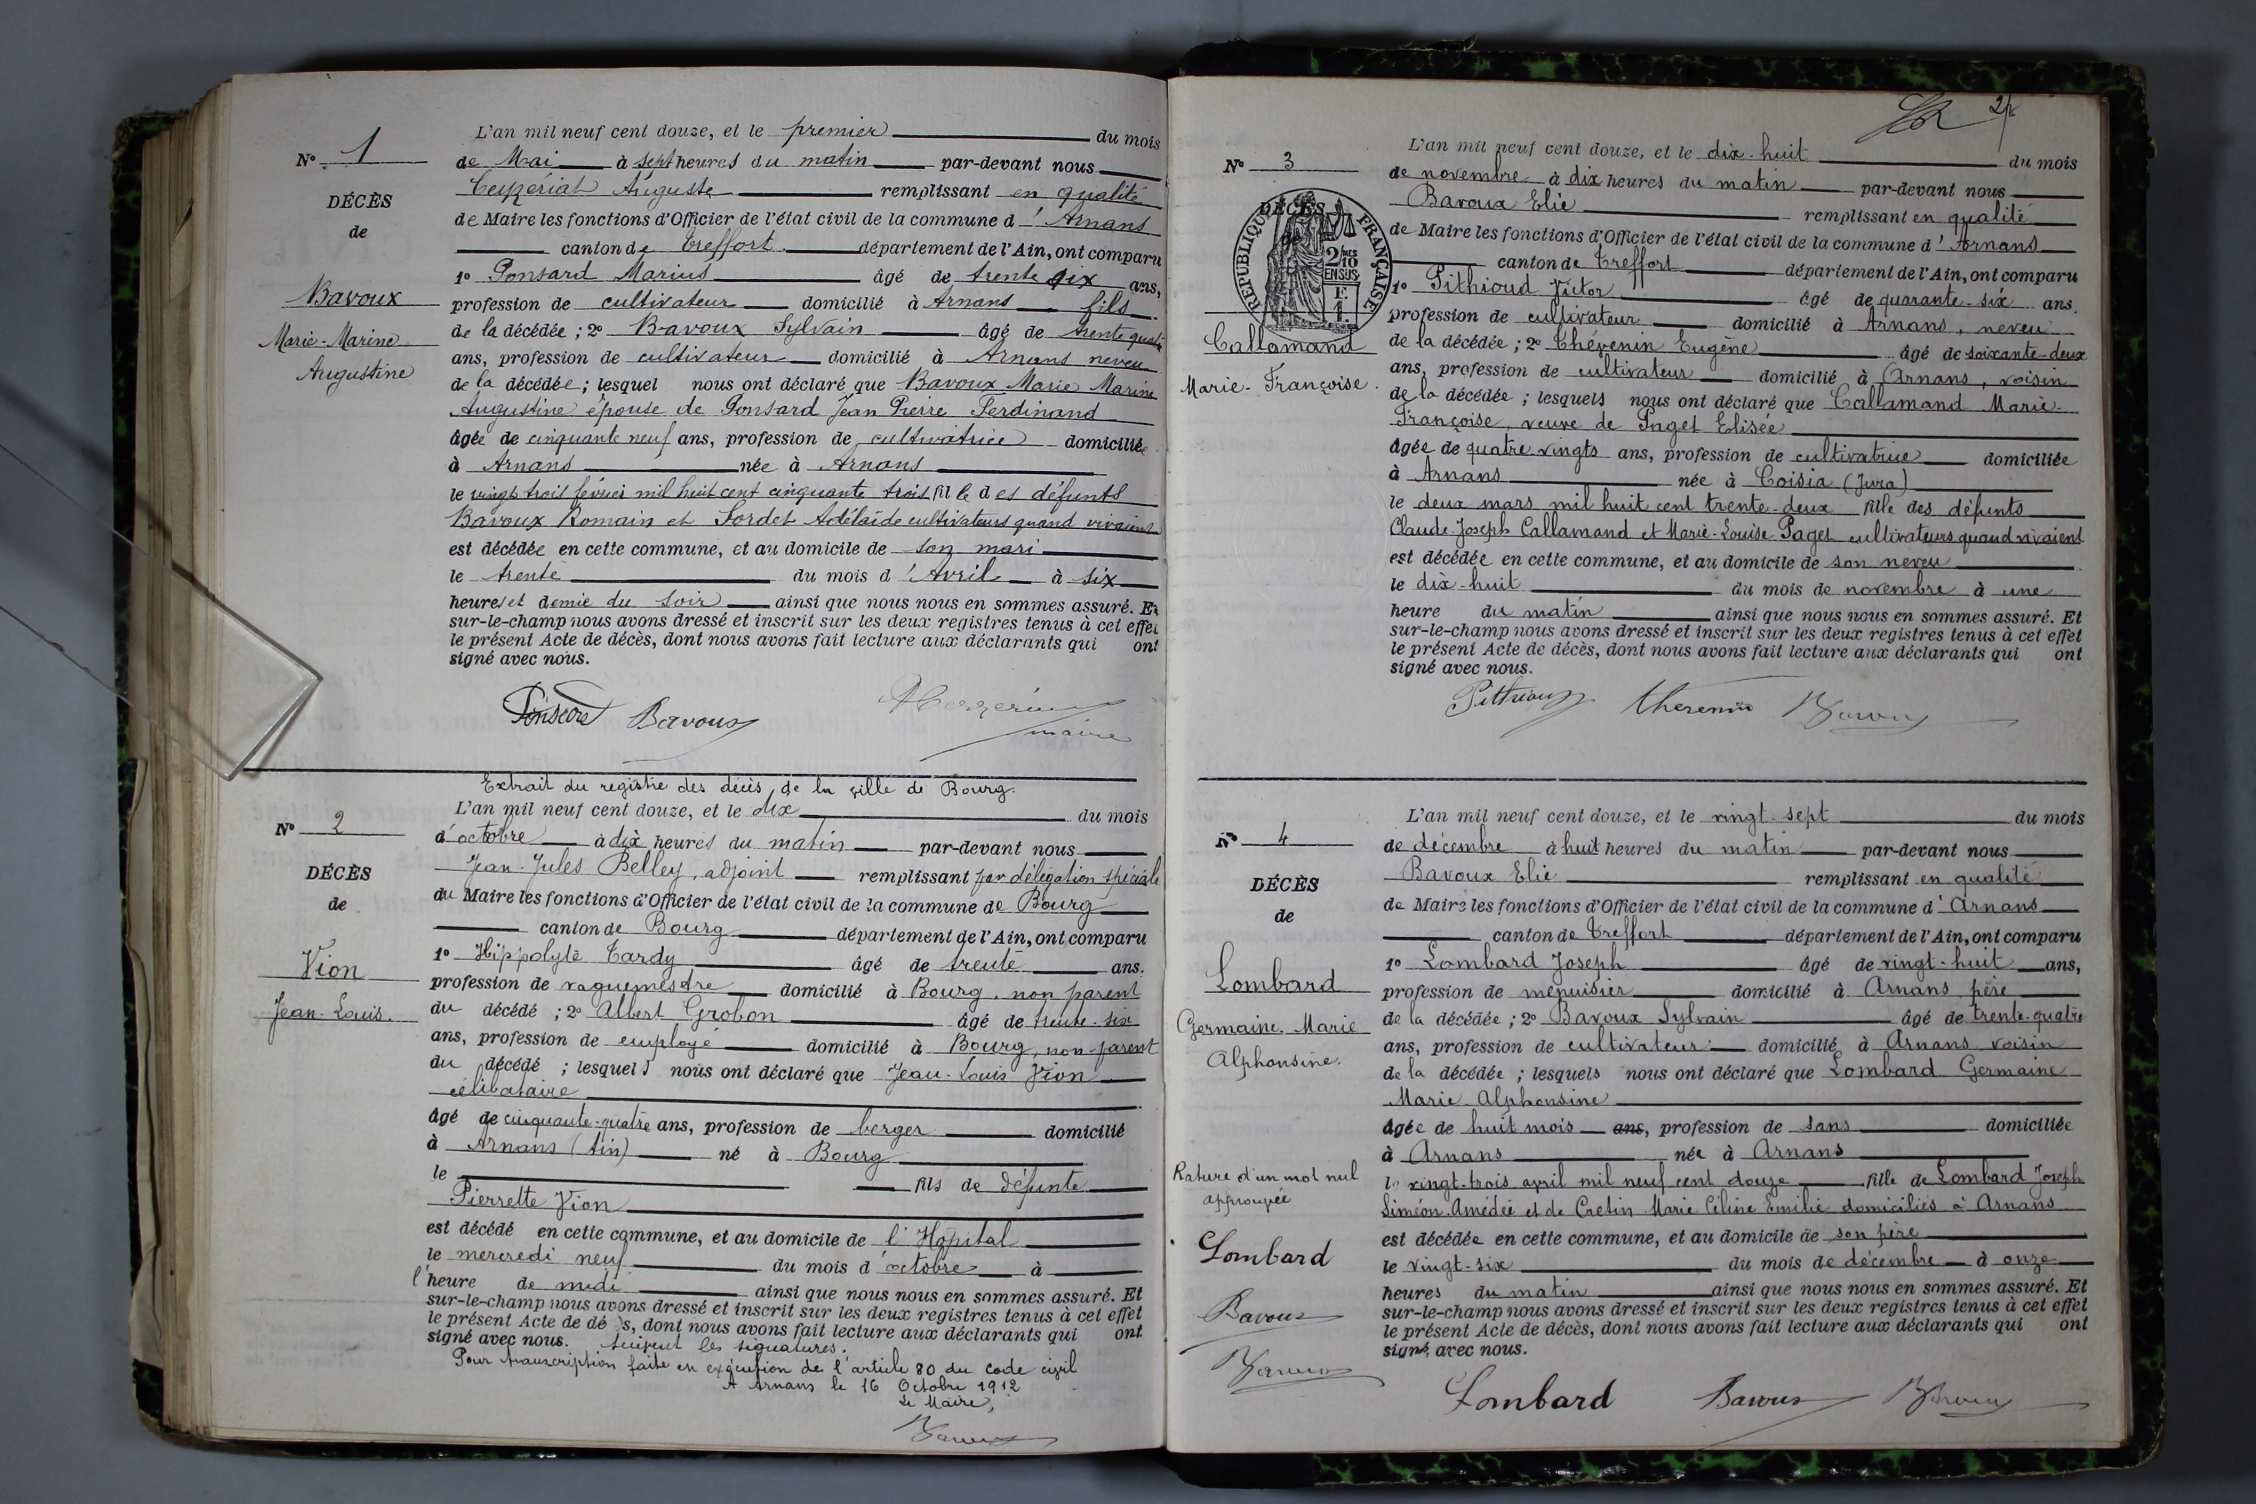 N° 1
DÉCÈS
de
Bavoux
Marie-Marine
Augustine
L'an mil neuf cent douze, et le premier du mois
de Mai à sept heures du matin par-devant nous
Ceyzériat Auguste remplissant en qualité
de Maire les fonctions d'Officier de l'état civil de la commune d'Arnans
canton de Treffort département de l'Ain, ont comparu
1° Ponsard Marius âgé de trente six ans,
profession de cultivateur domicilié à Arnans fils
de la décédée ; 2° Bavoux Sylvain âgé de trente quatre
ans, profession de cultivateur domicilié à Arnans neveu
de la décédée ; lesquel nous ont déclaré que Bavoux Marie Marine
Augustine épouse de Ponsard Jean Pierre Ferdinand
âgée de cinquante neuf ans, profession de cultivatrice domiciliée
à Arnans née à Arnans
le vingt trois février mil huit cent cinquante trois fille des défunts
Bavoux Romain et Sordet Adélaïde cultivateurs quand vivaient
est décédée en cette commune, et au domicile de son mari
le trente du mois d'Avril à six
heures et demie du soir ainsi que nous nous en sommes assuré. Et
sur-le-champ nous avons dressé et inscrit sur les deux registres tenus à cet effet
le présent Acte de décès, dont nous avons fait lecture aux déclarants qui ont
signé avec nous.
Ponsard Bavoux
maire
Extrait du registre des décès de la ville de Bourg.
N° 2
DÉCÈS
de
Vion
Jean-Louis.
L'an mil neuf cent douze, et le dix du mois
d'octobre à dix heures du matin par-devant nous
Jean-Jules Belley, adjoint remplissant par délégation spéciale
du Maire les fonctions d'Officier de l'état civil de la commune de Bourg
canton de Bourg département de l'Ain, ont comparu
1° Hippolyte Tardy âgé de trente ans.
profession de vaguemestre domicilié à Bourg, non parent
du décédé ; 2° Albert Grobon âgé de trente-six
ans, profession de employé domicilié à Bourg, non-parent
du décédé ; lesquels nous ont déclaré que Jean-Louis Vion
célibataire
âgé de cinquante-quatre ans, profession de berger domicilié
à Arnans (Ain) né à Bourg
le fils de défunte
Pierrette Vion
est décédé en cette commune, et au domicile de l'Hôpital
le mercredi neuf du mois d'octobre à
l'heure de midi ainsi que nous nous en sommes assuré. Et
sur-le-champ nous avons dressé et inscrit sur les deux registres tenus à cet effet
le présent Acte de dé s, dont nous avons fait lecture aux déclarants qui ont
signé avec nous. Suivent les signatures.
Pour transcription faite en exécution de l'article 80 du code civil
A Arnans le 16 Octobre 1912
Le Maire,
Bavoux
2
N° 3
DÉCÈS
de
RÉPUBLIQUE FRANÇAISE
2/10
EN SUS
Callamand
Marie-Françoise.
L'an mil neuf cent douze, et le dix-huit du mois
de novembre à dix heures du matin par-devant nous
Bavoux Elie remplissant en qualité
de Maire les fonctions d'Officier de l'état civil de la commune d'Arnans
canton de Treffort département de l'Ain, ont comparu
1° Pithioud Victor âgé de quarante-six ans.
profession de cultivateur domicilié à Arnans, neveu
de la décédée ; 2° Thévenin Eugène âgé de soixante-deux
ans, profession de cultivateur domicilié à Arnans, voisin
de la décédée ; lesquels nous ont déclaré que Callamand Marie-
Françoise, veuve de Paget Elisée
âgée de quatre vingts ans, profession de cultivatrice domiciliée
à Arnans née à Coisia (Jura)
le deux mars mil huit cent trente-deux fille des défunts
Claude-Joseph Callamand et Marie-Louise Paget cultivateurs quand vivaient
est décédée en cette commune, et au domicile de son neveu
le dix-huit du mois de novembre à une
heure du matin ainsi que nous nous en sommes assuré. Et
sur-le-champ nous avons dressé et inscrit sur les deux registres tenus à cet effet
le présent Acte de décès, dont nous avons fait lecture aux déclarants qui ont
signé avec nous.
Pithioud Thevenin Bavoux
N° 4
DÉCÈS
de
Lombard
Germaine Marie
Alphonsine.
Rature d'un mot nul
approuvée
Lombard
Bavoux
Bavoux
L'an mil neuf cent douze, et le vingt-sept du mois
de décembre à huit heures du matin par-devant nous
Bavoux Elie remplissant en qualité
de Maire les fonctions d'Officier de l'état civil de la commune d'Arnans
canton de Treffort département de l'Ain, ont comparu
1° Lombard Joseph âgé de vingt-huit ans,
profession de menuisier domicilié à Arnans père
de la décédée ; 2° Bavoux Sylvain âgé de trente-quatre
ans, profession de cultivateur domicilié à Arnans voisin
de la décédée ; lesquels nous ont déclaré que Lombard Germaine
Marie Alphonsine
âgée de huit mois ans, profession de sans domiciliée
à Arnans née à Arnans
le vingt-trois avril mil neuf cent douze fille de Lombard Joseph
Siméon-Amédée et de Cretin Marie Céline Emilie domiciliés à Arnans
est décédée en cette commune, et au domicile de son père
le vingt-six du mois de décembre à onze
heures du matin ainsi que nous nous en sommes assuré. Et
sur-le-champ nous avons dressé et inscrit sur les deux registres tenus à cet effet
le présent Acte de décès, dont nous avons fait lecture aux déclarants qui ont
signé avec nous.
Lombard Bavoux Bavoux